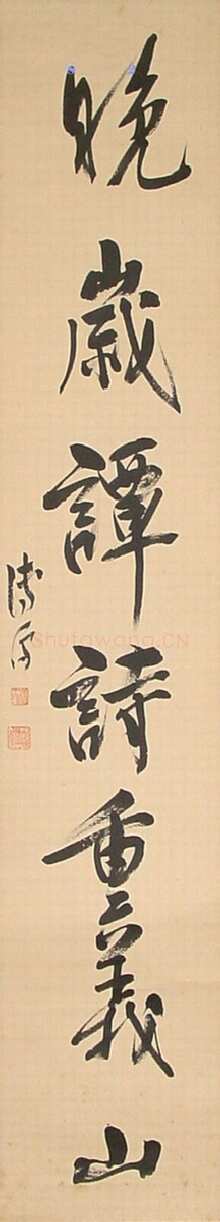 晚歲譚詩重義山
shufawang.CN